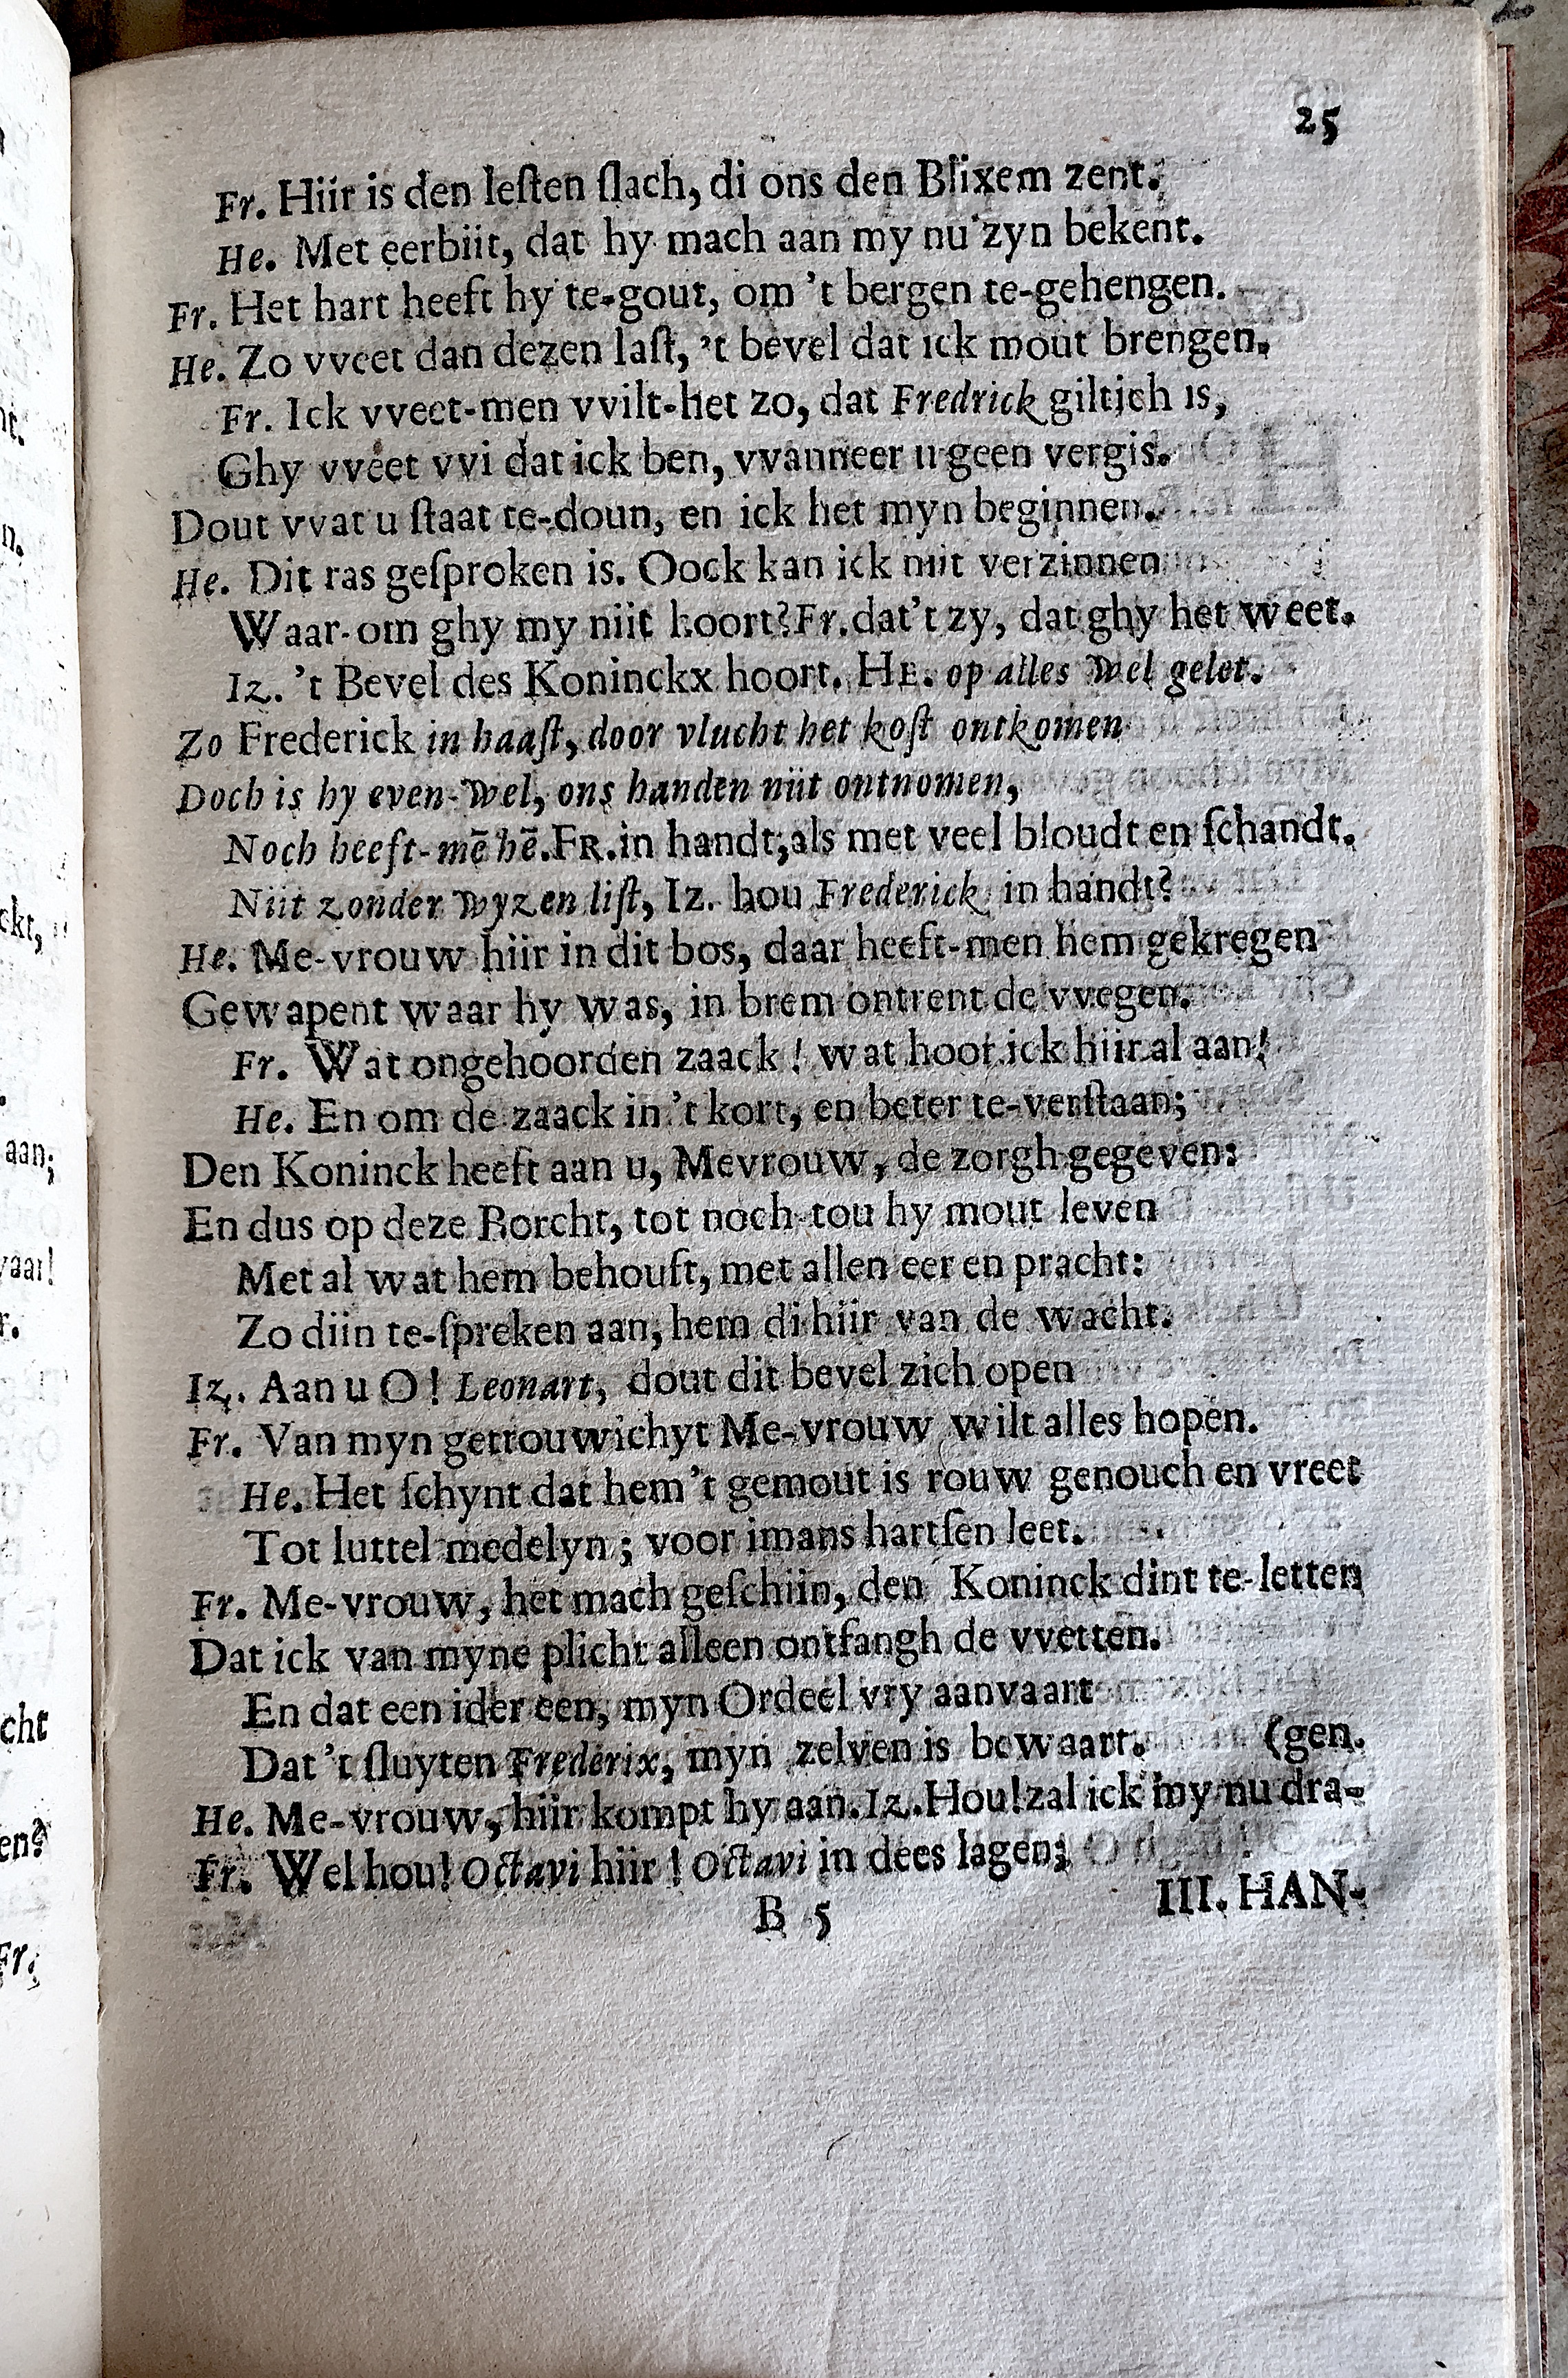 25
Fr. Hiir is den leſten ſlach, di ons den Blixem zent.
He. Met eerbiit, dat hy mach aan my nu zyn bekent.
Fr. Het hart heeft hy te-gout, om 't bergen te-gehengen.
He. Zo vveet dan dezen laſt, 't bevel dat ick mout brengen.
Fr. Ick vveet-men vvilt-het zo, dat Fredrick giltich is,
Ghy vveet vvi dat ick ben, vvanneer u geen vergis.
Dout vvat u ſtaat te-doun, en ick het myn beginnen.
He. Dit ras geſproken is. Oock kan ick niit verzinnen
Waar-om ghy my niit hoort? Fr. dat't zy, dat ghy het weet.
Iz. 't Bevel des Koninckx hoort. HE. op alles wel gelet.
Zo Frederick in haaſt, door vlucht het koſt ontkomen
Doch is hy even-wel, ons handen niit ontnomen,
Noch heeft-mē hē. FR. in handt; als met veel bloudt en ſchandt.
Niit zonder wyzen liſt, Iz. hou Frederick in handt?
He. Me-vrouw hiir in dit bos, daar heeft-men hem gekregen
Gewapent waar hy was, in brem ontrent de vvegen.
Fr. Wat ongehoorden zaack! wat hoor ick hiir al aan!
He. En om de zaack in 't kort, en beter te-verſtaan;
Den Koninck heeft aan u, Mevrouw, de zorgh gegeven:
En dus op deze Borcht, tot noch-tou hy mout leven
Met al wat hem behouft, met allen eer en pracht:
Zo diin te-ſpreken aan, hem di hiir van de wacht.
Iz. Aan u O! Leonart, dout dit bevel zich open
Fr. Van myn getrouwichyt Me-vrouw wilt alles hopen.
He. Het ſchynt dat hem 't gemout is rouw genouch en vreet
Tot luttel medelyn; voor imans hartſen leet.
Fr. Me-vrouw, het mach geſchiin, den Koninck dint te-letten
Dat ick van myne plicht alleen ontfangh de vvetten.
En dat een ider een, myn Ordeel vry aanvaart
Dat 't ſluyten Frederix, myn zelven is bewaart. (gen.
He. Me-vrouw, hiir kompt hy aan. Iz. Hou! zal ick my nu dra-
Fr. Wel hou! Octavi hiir! Octavi in dees lagen;
B 5 III. HAN-